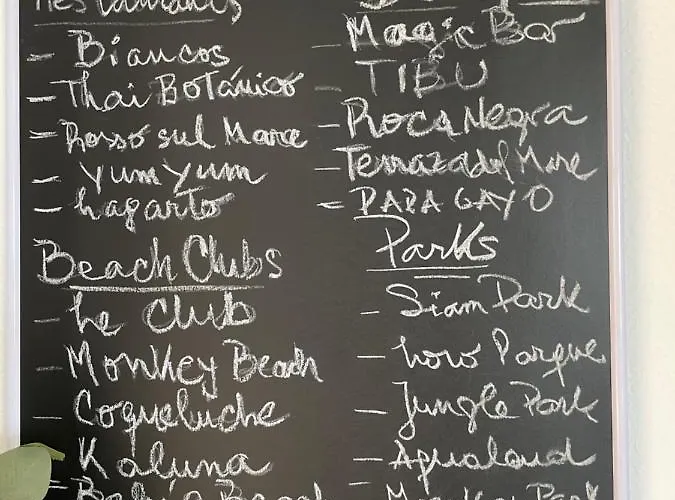 Restaurants
- Biancos
- Thai Botánico
- Rosso sul Mare
- Yum Yum
- Lagarto
Beach Clubs
- Le Club
- Monkey Beach
- Coqueluche
- Kaluna
- Magic Bar
- TIBU
- Roca Negra
- Terraza del Mare
- PAPAGAYO
Parks
- Siam Park
- Loro Parque
- Jungle Park
- Aqualand
- Monkey Park